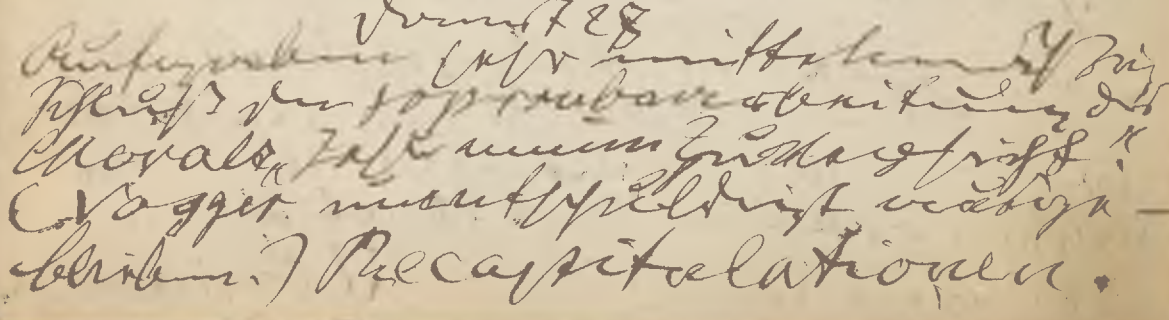 28
Aufgaben sehr mittelmäßig
Schluß der Sopranbearbeitung des
Chorals „Jesus meine Zuversicht“.
(Nagger unentschuldigt ausge-
blieben.) Recapitulationen.